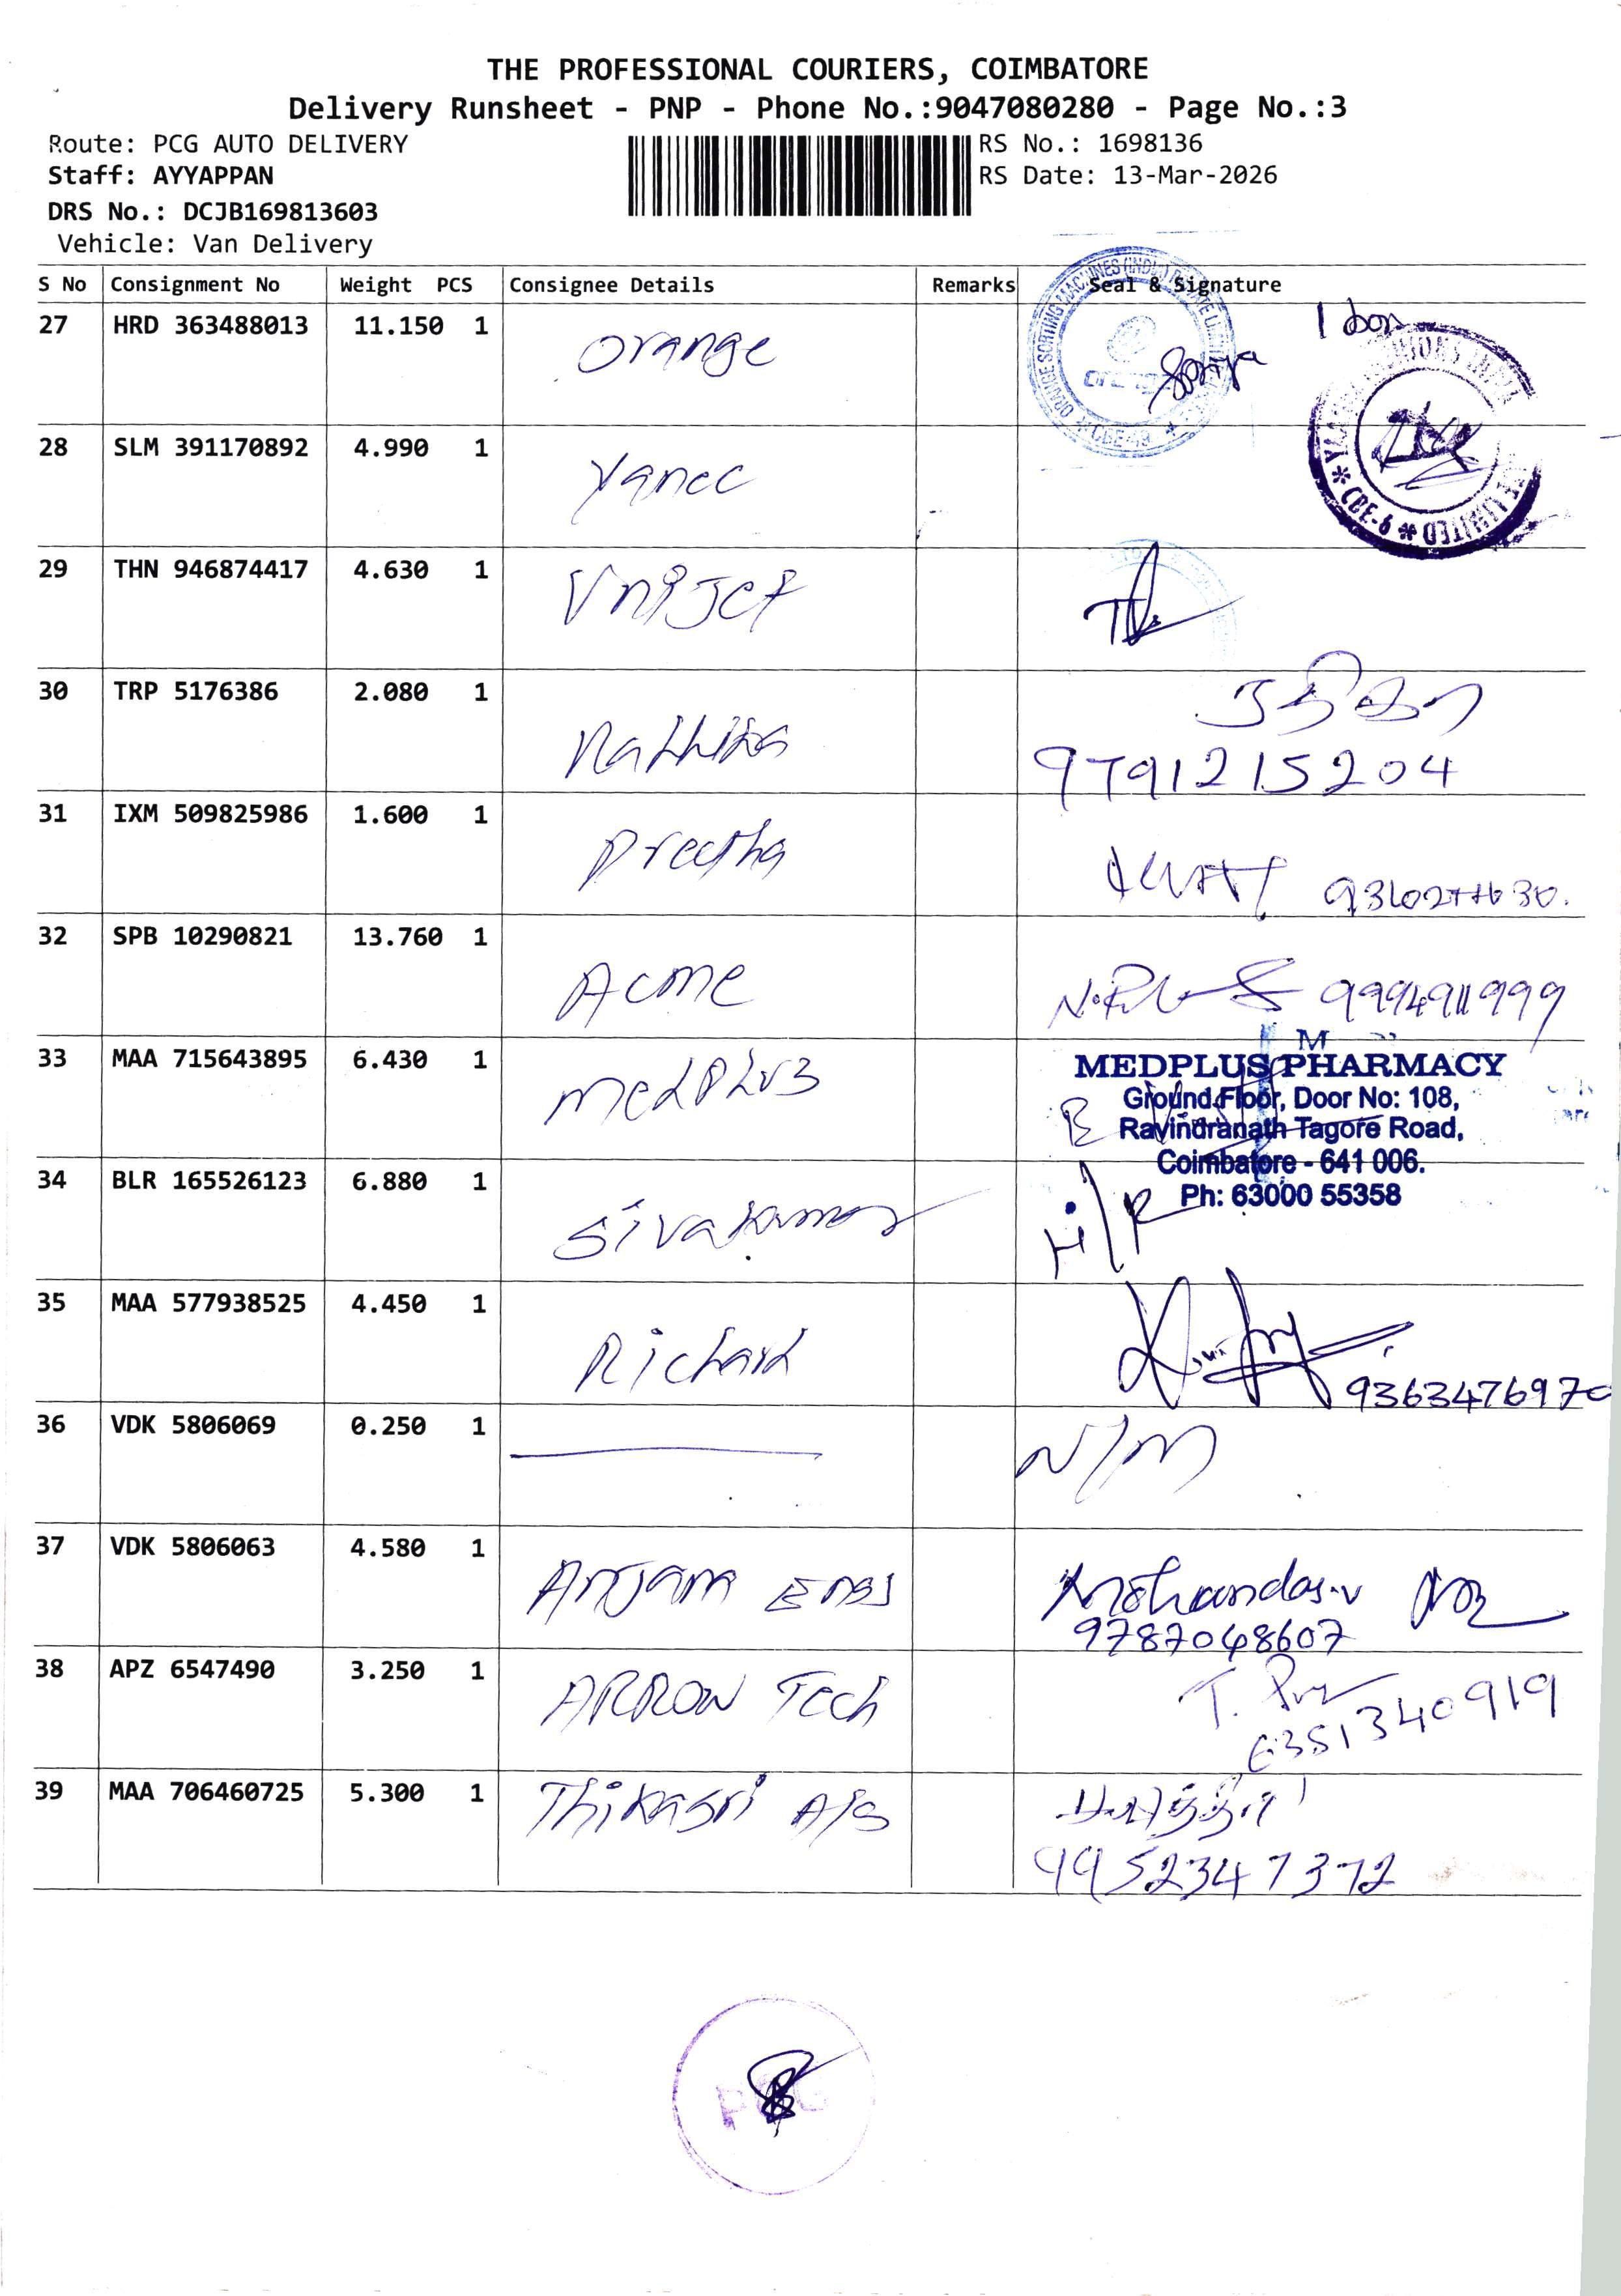 THE PROFESSIONAL COURIERS, COIMBATORE
Delivery Runsheet - PNP - Phone No.:9047080280 - Page No.:3
Route: PCG AUTO DELIVERY
RS No.: 1698136
Staff: AYYAPPAN
RS Date: 13-Mar-2026
DRS No.: DCJB169813603
Vehicle: Van Delivery
S No Consignment No Weight PCS Consignee Details Remarks Seal & Signature
27 HRD 363488013 11.150 1 Orange
1 box
28 SLM 391170892 4.990 1 Yanec
29 THN 946874417 4.630 1 Vnijet
30 TRP 5176386 2.080 1
9791215204
31 IXM 509825986 1.600 1 Preetha
32 SPB 10290821 13.760 1 Acme
9994911999
33 MAA 715643895 6.430 1 medplus
MEDPLUS PHARMACY
Ground Floor, Door No: 108,
Ravindranath Tagore Road,
Coimbatore - 641 006.
Ph: 63000 55358
34 BLR 165526123 6.880 1 Sivakumar
H/R
35 MAA 577938525 4.450 1 Richard
9363476970
36 VDK 5806069 0.250 1 N/M
37 VDK 5806063 4.580 1 Anjana Mohandas.v
9787048607
38 APZ 6547490 3.250 1 ARROW Tech
6351340919
39 MAA 706460725 5.300 1 Thikasri A/S
9952347372
PCG